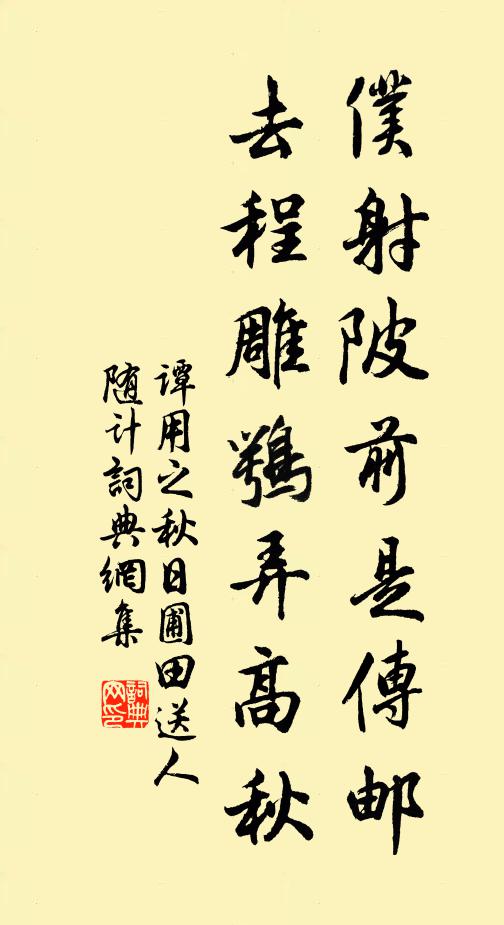 僕射陂前是傳邮
去程雕鶚弄高秋
谭用之秋日圃田送人
随计詞典網集
詞典网印